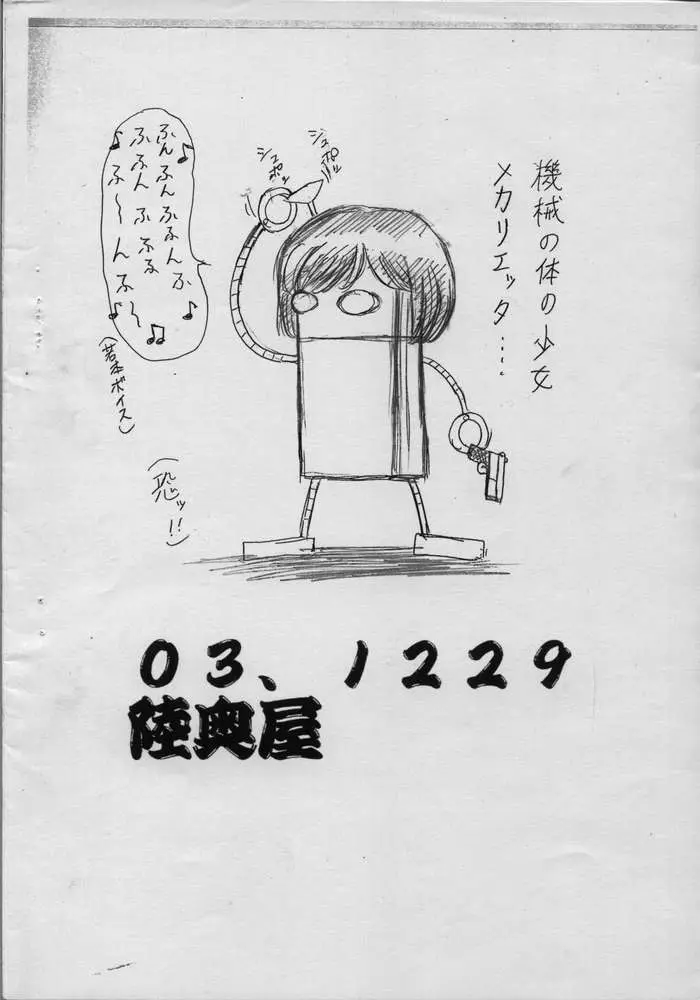 機械の体の少女
メカリエッタ……
ジュポッ
ジュポッ
ふんふんふるんふ
ふふん ふふる
ふ～んふ～
（若本ボイス）
（恐ッ!!）
03、1229
陸奥屋